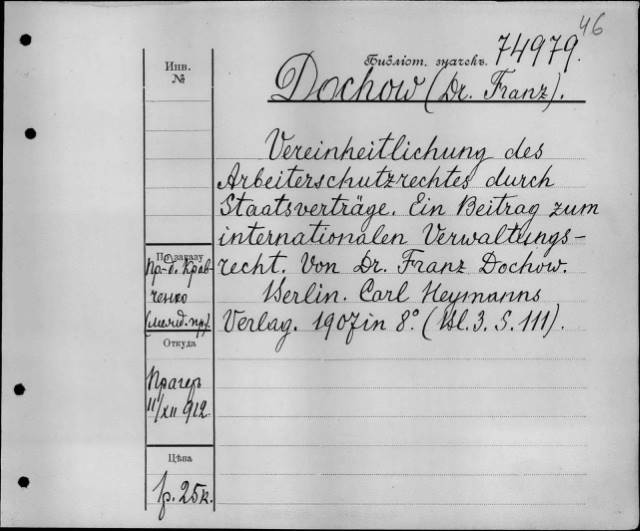 46
Библіот. значекъ. 74979.
Dochow (Dr. Franz).
Инв.
№
Vereinheitlichung des
Arbeiterschutzrechtes durch
Staatsverträge. Ein Beitrag zum
internationalen Verwaltungs-
recht. Von Dr. Franz Dochow.
Berlin. Carl Heymanns
Verlag. 1907 in 8° ( S. 111).
По заказу
Пр-в. Крав-
ченко
Откуда
Прагеръ
11/XII 912
Цѣна
р. 25к.